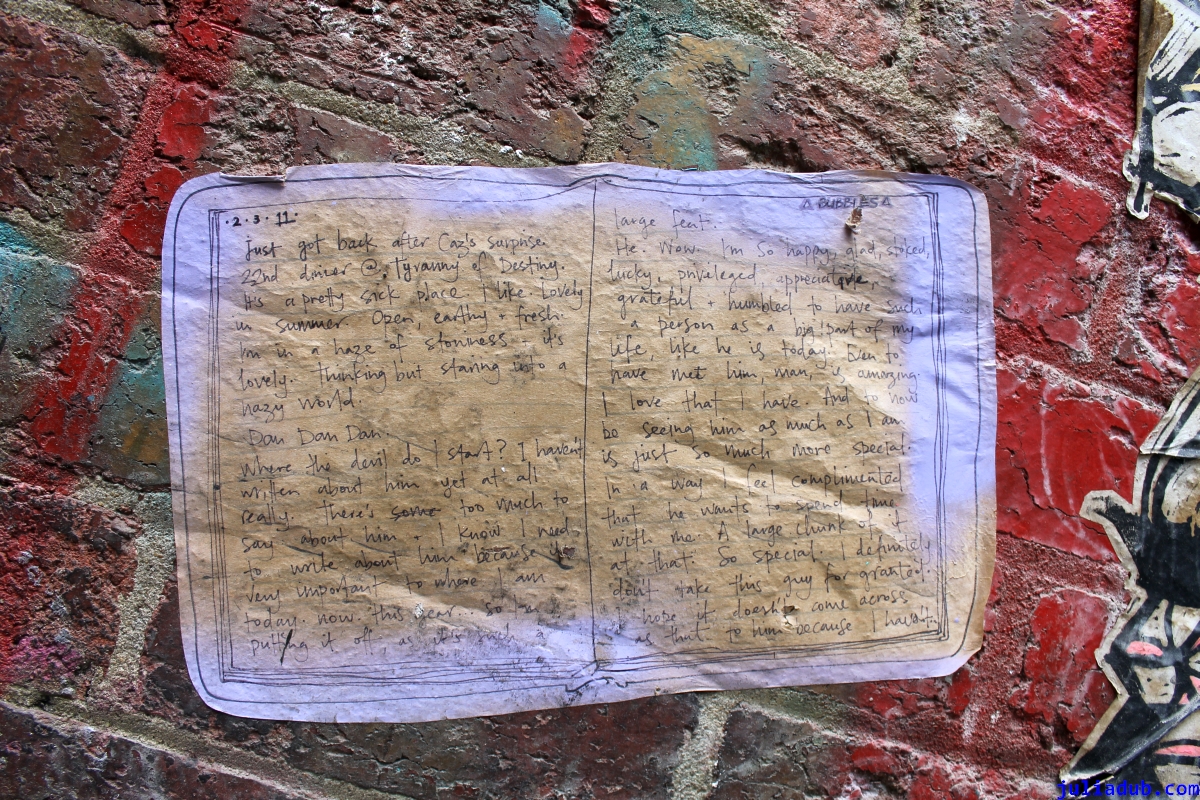 ·2·3·11·
Just got back after Caz's surprise
22nd dinner @ Tyranny of Destiny.
It's a pretty sick place. I like. Lovely
in summer. Open, earthy + fresh.
I'm in a haze of stoniness - it's
lovely. Thinking but staring into a
hazy world.
Dan Dan Dan.
Where the devil do I start? I haven't
written about him yet at all
really. There's some too much to
say about him + I know I need
to write about him because
very important to where I am
today. now. this year... So I've
putting it off, as it's such a
BUBBLES
large feat.
He. Wow. I'm so happy, glad, stoked,
lucky, privileged, appreciative,
grateful + humbled to have such
a person as a big part of my
life, like he is today. Even to
have met him, man, is amazing.
I love that I have. And to now
be seeing him as much as I am
is just so much more special.
In a way I feel complimented
that he wants to spend time
with me. A large chunk of it
at that. So special. I definitely
don't take this guy for granted.
I hope it doesn't come across
as that to him because I haven't
juliadub.com